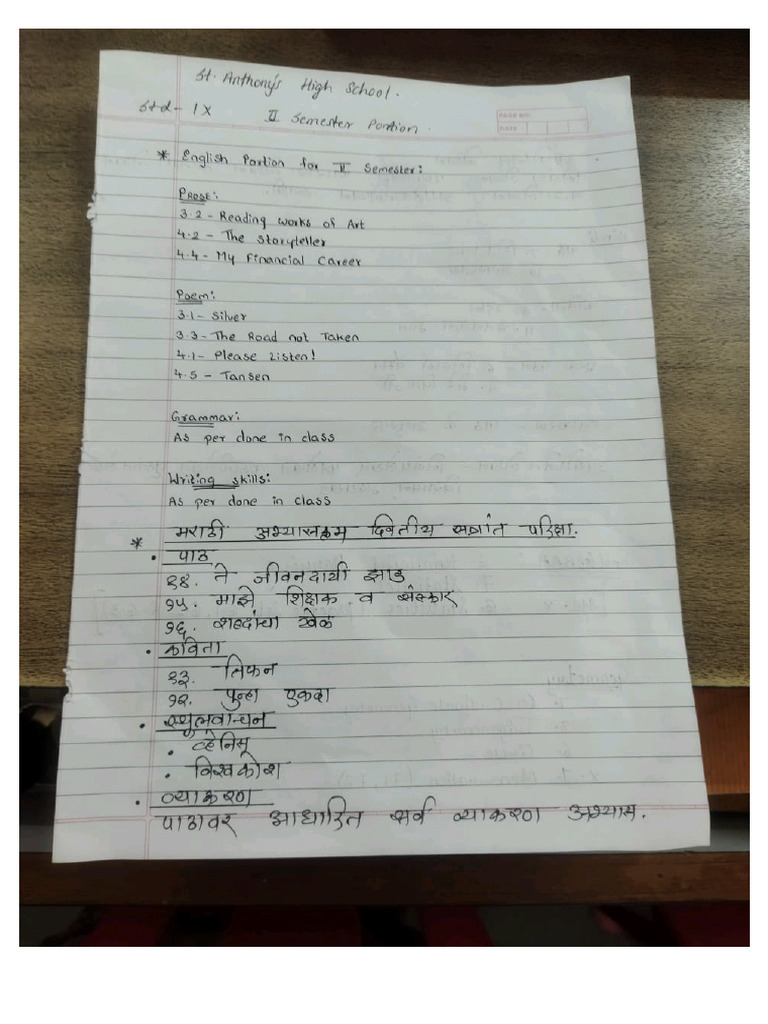 St. Anthony's High School.
Std - IX II Semester Portion.
PAGE NO.
DATE
* English Portion for II Semester:
Prose:
3.2 - Reading Works of Art
4.2 - The Storyteller
4.4 - My Financial Career
Poem:
3.1 - Silver
3.3 - The Road not Taken
4.1 - Please Listen!
4.5 - Tansen
Grammar:
As per done in class
Writing skills:
As per done in class
* मराठी अभ्यासक्रम द्वितीय सत्रांत परिक्षा.
• पाठ
१४. ते जीवनदायी झाड
१५. माझे शिक्षक व संस्कार
१६. शब्दांचा खेळ
• कविता
१३. तिफन
१२. पुन्हा एकदा
• स्थूलवाचन
• व्हेनिस्
• विश्वकोश
• व्याकरण
पाठावर आधारित सर्व व्याकरण अभ्यास.